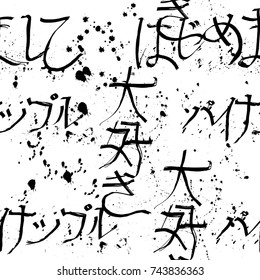 して
はじめま
大好き
ップル
パイナ
大好
イナップル
パイ
www.shutterstock.com · 743836363